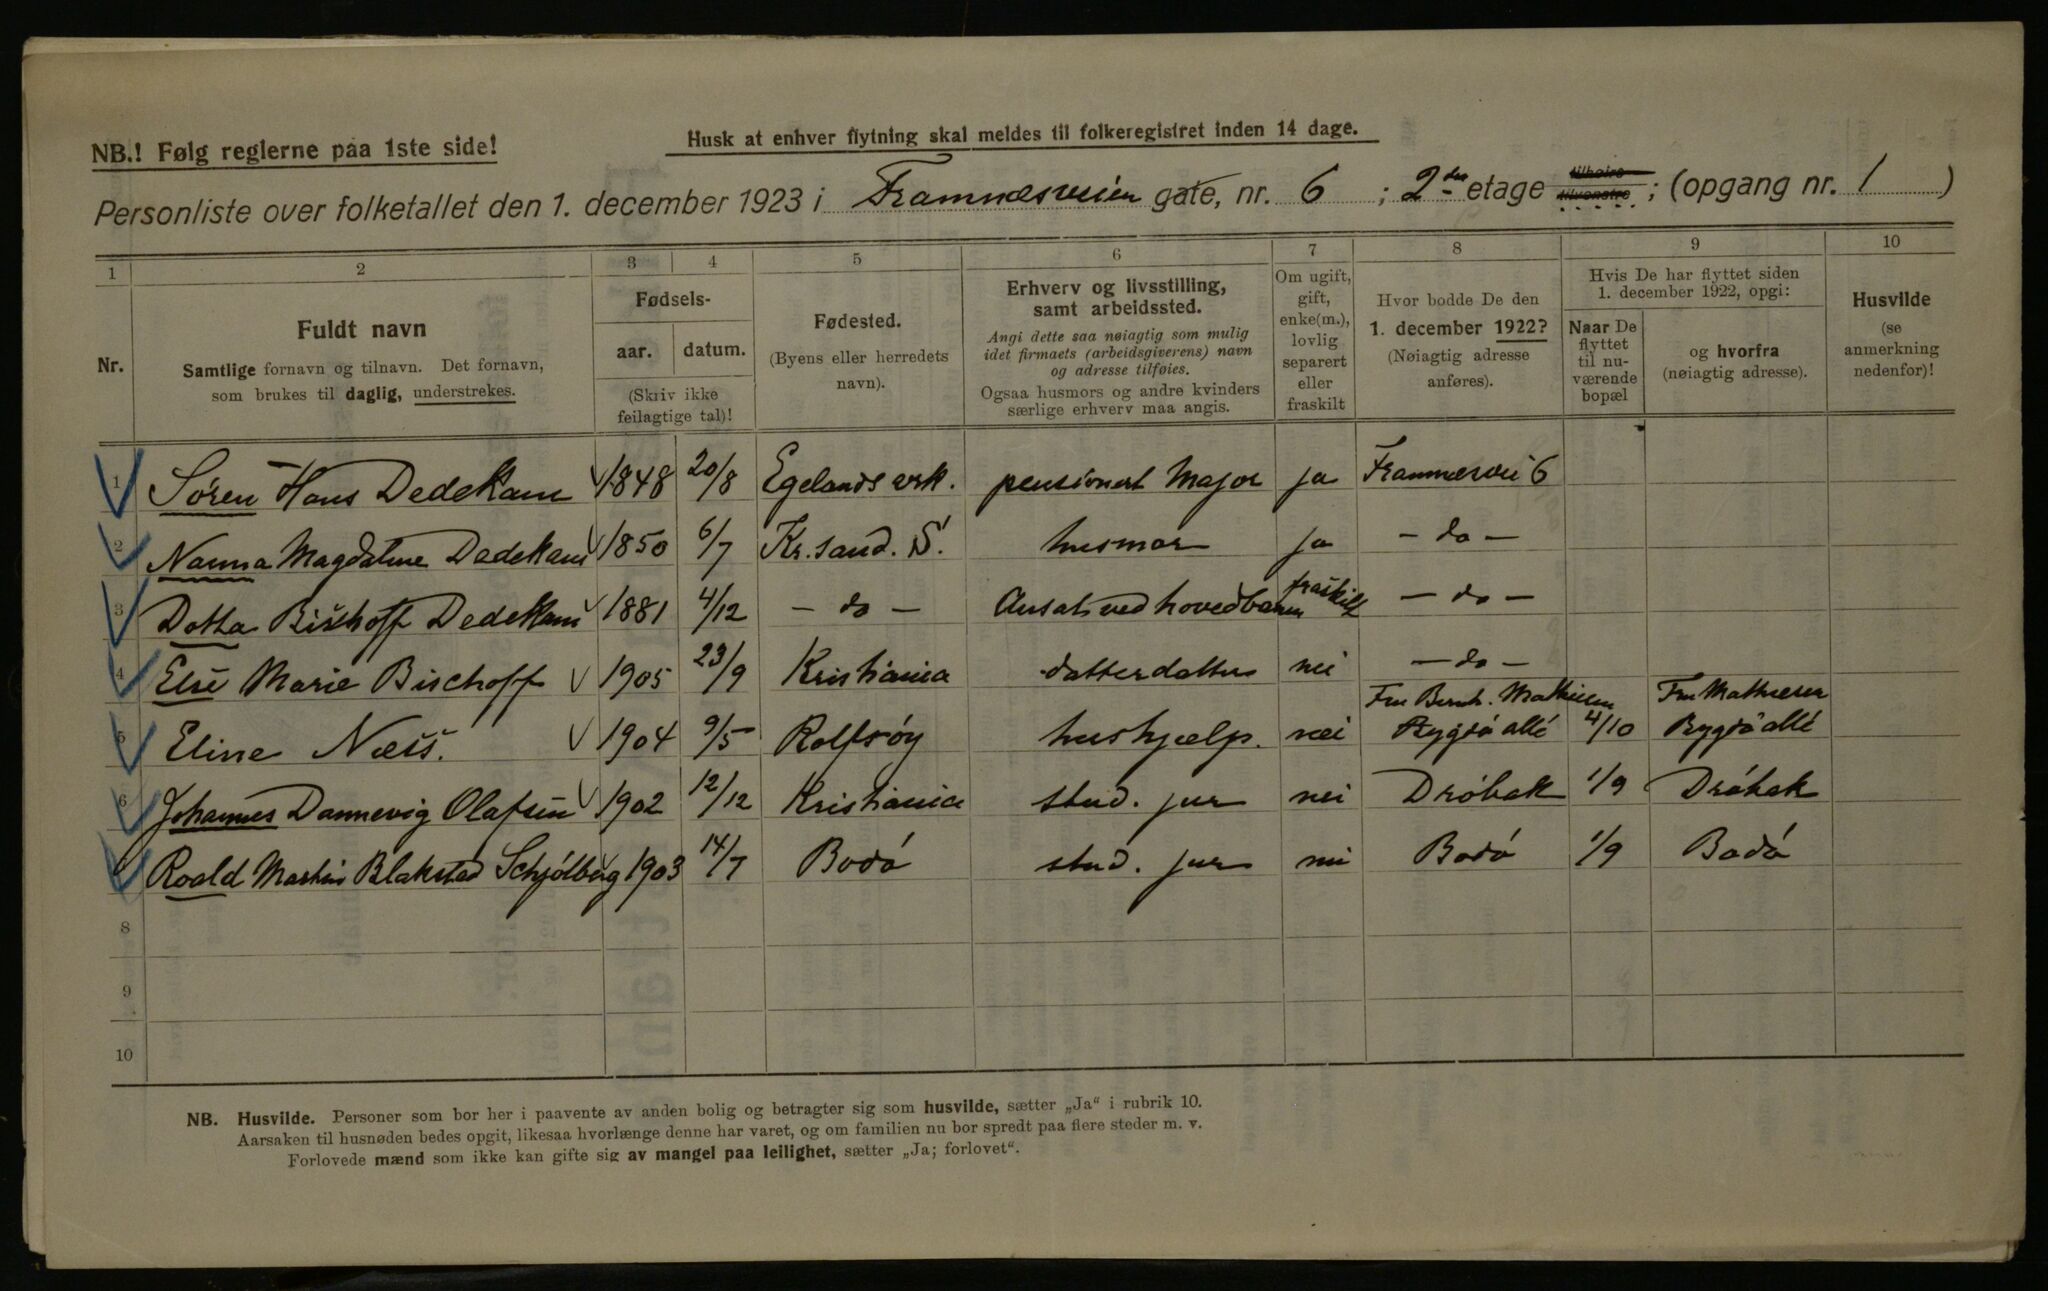 NB.! Følg reglerne paa 1ste side!
Husk at enhver flytning skal meldes til folkeregistret inden 14 dage.
Personliste over folketallet den 1. december 1923 i Framnæsveien gate, nr. 6 ; 2den etage tilhøire tilvenstre ; (opgang nr. 1 )
1 2 3 4 5 6 7 8 9 10
Nr. Fuldt navn
Samtlige fornavn og tilnavn. Det fornavn,
som brukes til daglig, understrekes.
Fødsels-
aar. datum.
(Skriv ikke
feilagtige tal)!
Fødested.
(Byens eller herredets
navn).
Erhverv og livsstilling,
samt arbeidssted.
Angi dette saa nøiagtig som mulig
idet firmaets (arbeidsgiverens) navn
og adresse tilføies.
Ogsaa husmors og andre kvinders
særlige erhverv maa angis.
Om ugift,
gift,
enke(m.),
lovlig
separert
eller
fraskilt
Hvor bodde De den
1. december 1922?
(Nøiagtig adresse
anføres).
Hvis De har flyttet siden
1. december 1922, opgi:
Naar De
flyttet
til nu-
værende
bopæl
og hvorfra
(nøiagtig adresse).
Husvilde
(se
anmerkning
nedenfor)!
1 Søren Hans Dedekam 1848 20/8 Egelands verk. pensionert Major ja Framnæsvei 6
2 Nanna Magdalene Dedekam 1850 6/7 Kr.sand. S. husmor ja - do -
3 Dotta Bischoff Dedekam 1881 4/12 - do - Ansat ved hovedbanen fraskilt - do -
4 Else Marie Bischoff 1905 23/9 Kristiania datterdatter nei - do -
5 Eline Næss. 1904 9/5 Rolfsøy hushjælp. nei Fru Bernh. Mathiesen Bygdö allé 4/10 Fru Mathiesen Bygdö allé
6 Johannes Dannevig Olafsen 1902 12/12 Kristiania stud. jur nei Dröbak 1/9 Dröbak
Roald Martin Blakstad Schjölberg 1903 14/7 Bodö stud. jur nei Bodö 1/9 Bodö
8
9
10
NB. Husvilde. Personer som bor her i paavente av anden bolig og betragter sig som husvilde, sætter „Ja“ i rubrik 10.
Aarsaken til husnøden bedes opgit, likesaa hvorlænge denne har varet, og om familien nu bor spredt paa flere steder m. v.
Forlovede mænd som ikke kan gifte sig av mangel paa leilighet, sætter „Ja; forlovet“.